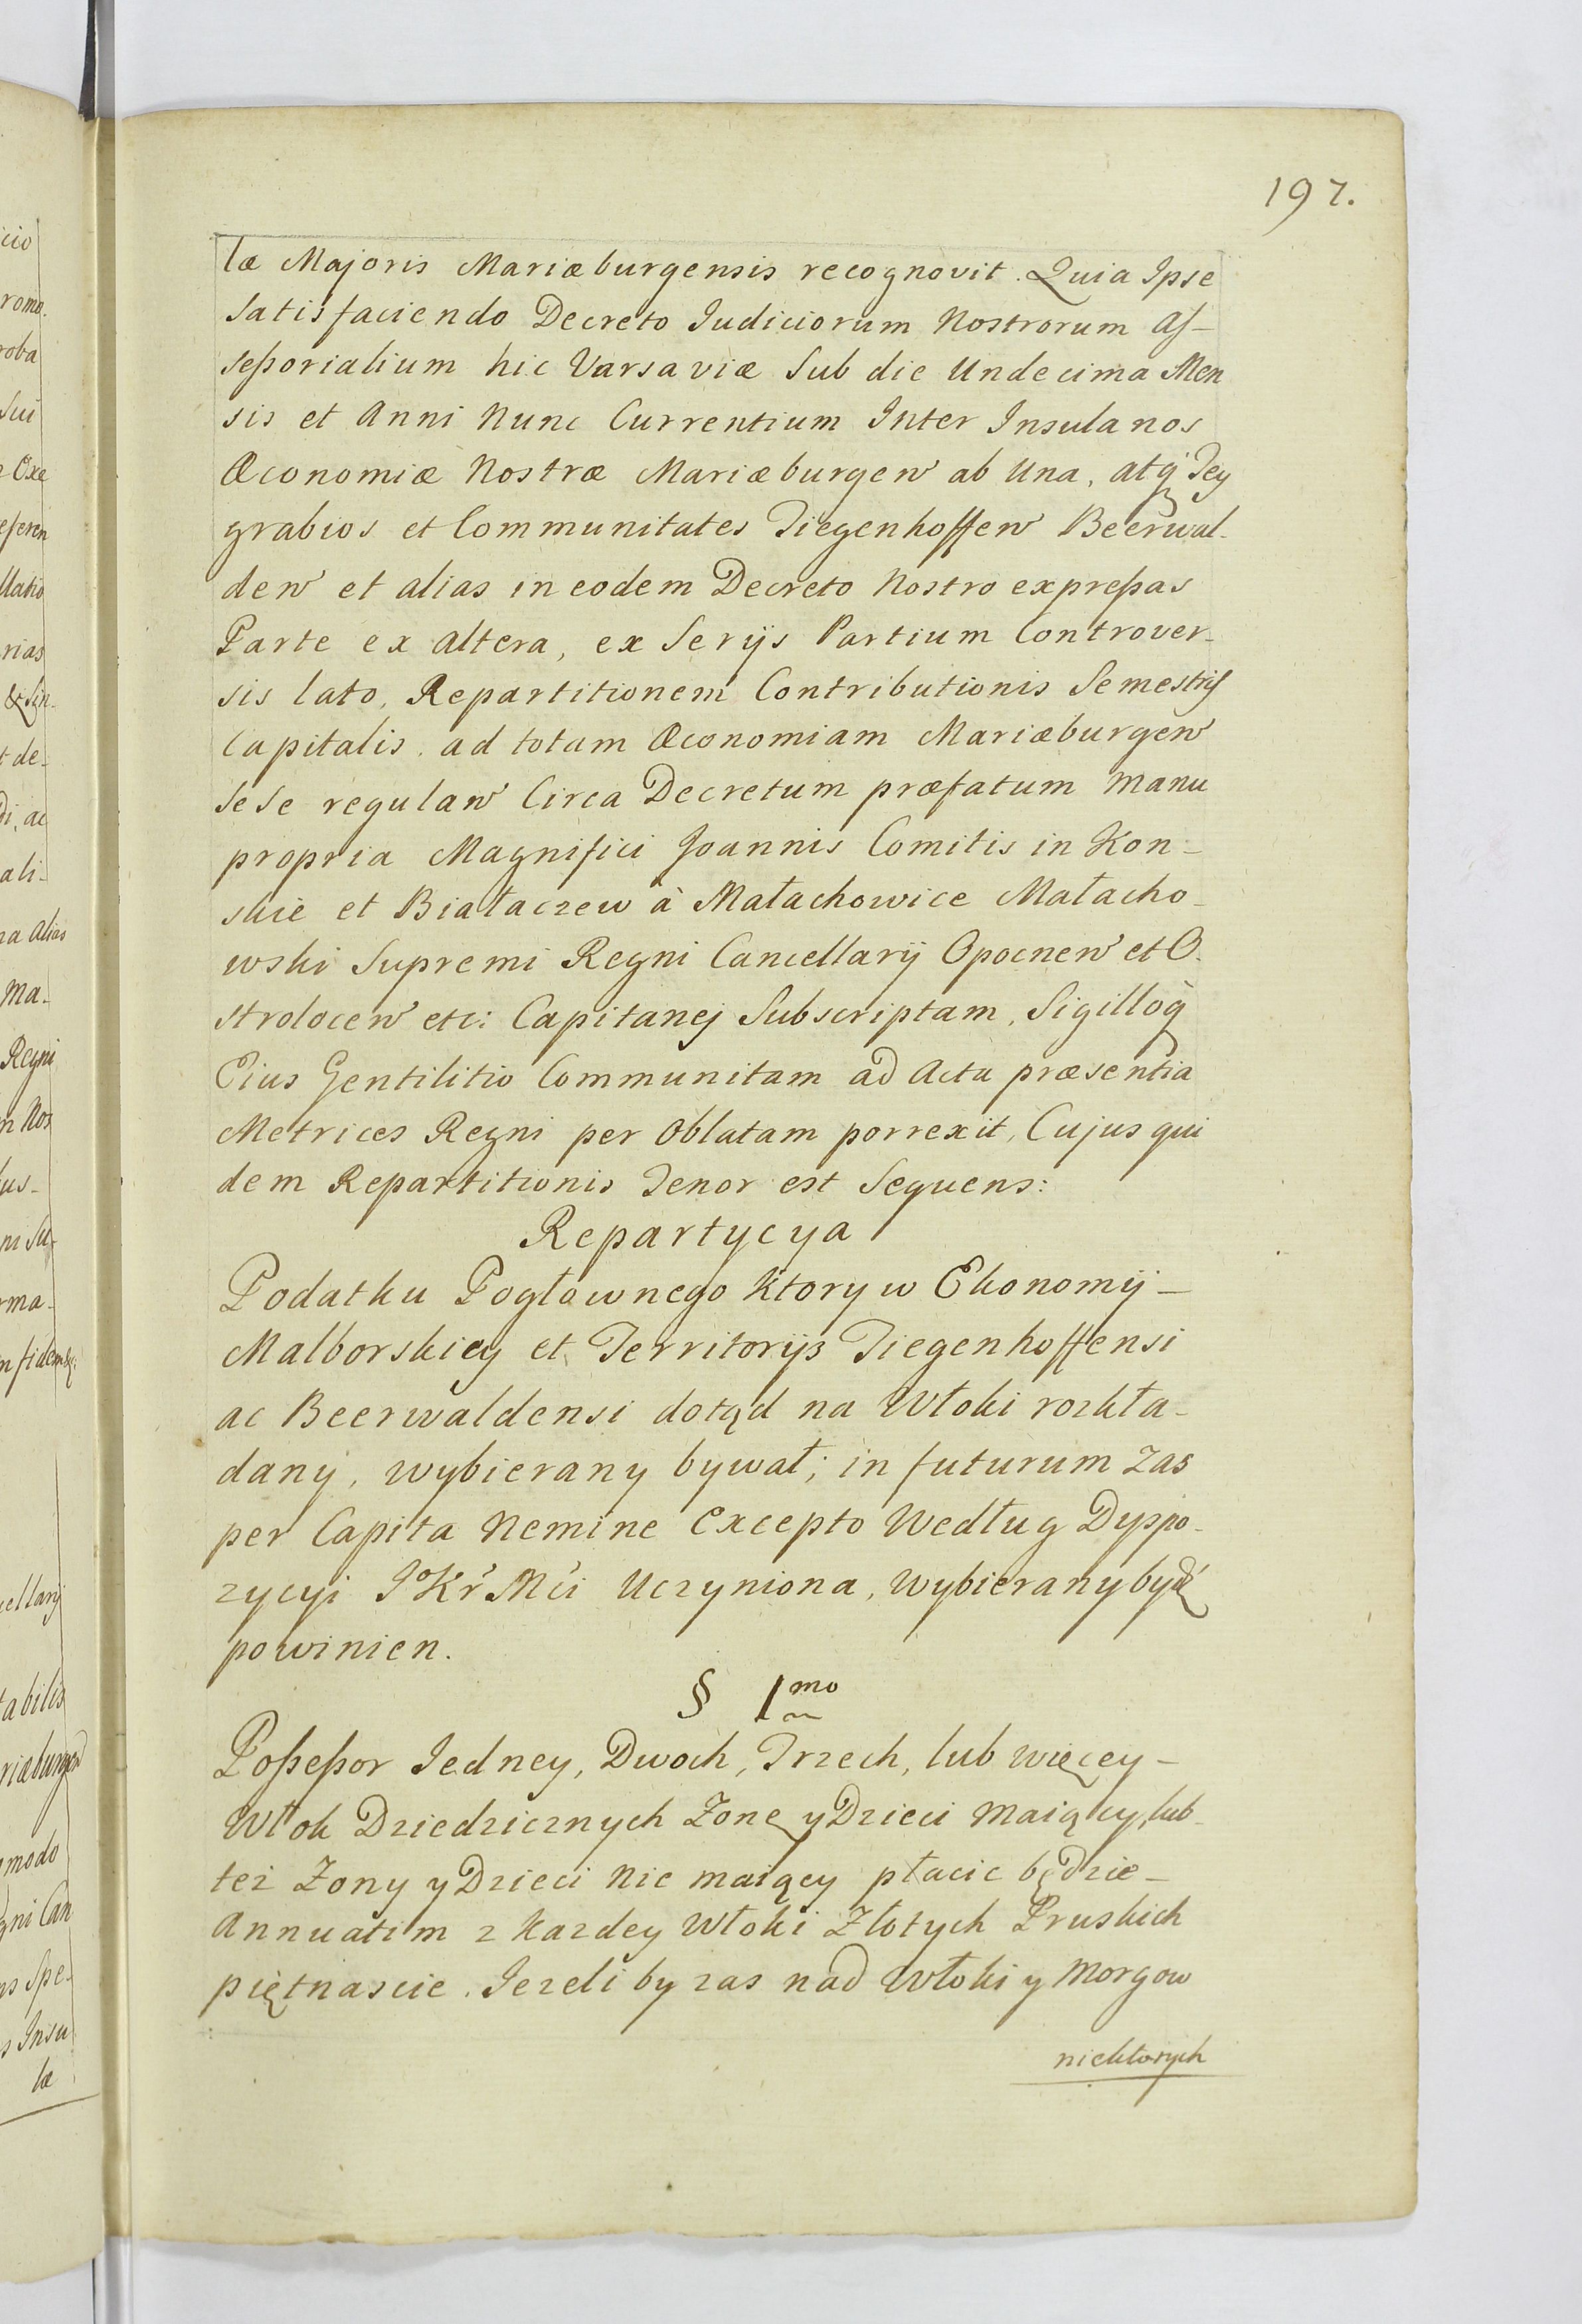 197.
læ Majoris Mariæburgensis recognovit. Quia Ipse
Satisfaciendo Decreto Iudiciorum Nostrorum As-
seßorialium hic Varsaviæ Sub die Undecima Men
sis et Anni Nunc Currentium Inter Insulanos
Œconomiæ Nostræ Mariæburgen̄ ab Una, atq̀ Tey
grabios et Communitates Tiegenhoffen̄ Beerwal-
den̄ et alias in eodem Decreto Nostro expreßas
Parte ex altera, ex Serijs Partium Controver-
sis lato, Repartitionem Contributionis Semestris
Capitalis. ad totam Œconomiam Mariæburgen̄
sese regulan̄ Circa Decretum præfatum manu
propria Magnifici Joannis Comitis in Kon-
skie et Białaczew à Małachowice Małacho-
wski Supremi Regni Cancellarij Opocnen̄ et O-
strolocen̄ etc: Capitanej Subscriptam, Sigilloq̀
Eius Gentilitio Communitam ad Acta præsentia
Metrices Regni per Oblatam porrexit, Cujus qui
dem Repartitionis Tenor est Sequens:
Repartycya
Podatku Pogłownego Ktory w Ekonomij-
Malborskiey et Territorijs Tiegenhoffensi
ac Beerwaldensi dotąd na Włoki rozkła-
dany, wybierany bywał; in futurum zas
per Capita Nemine Excepto Według Dyspo-
zycyi JoKr̄ Mci Uczyniona, wybierany bydź
powinien.
§ 1mo
Poßeßor Iedney, Dwoch, Trzech, lub więcey-
Włok Dziedzicznych Zonę y Dzieci Maiący, lub-
tez Zony y Dzieci Nie maiący płacic będzie-
Annuatim z Kazdey Włoki Złotych Pruskich
piętnascie. Iezeli by zas nad Włoki y Morgow
niektorych